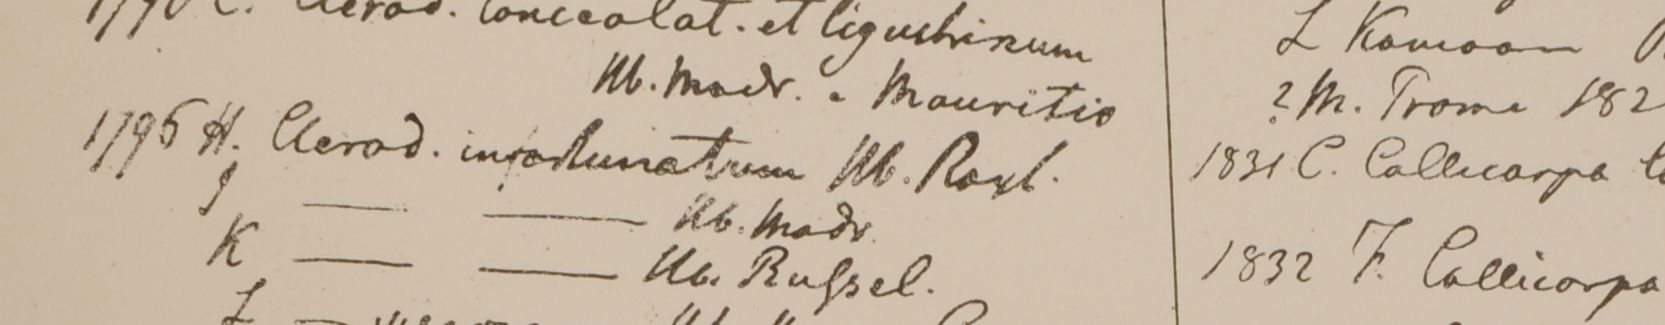 Clerod. et ligustrinum
Hb. Madr. e Mauritio
1796 H. Clerod. infortunatum Hb. Roxl.
J — — Hb. Madr.
K — — Hb. Russel.
L —
L Kamoon
? M. Trome 182
1831 C. Callicarpa
1832 F. Callicarpa